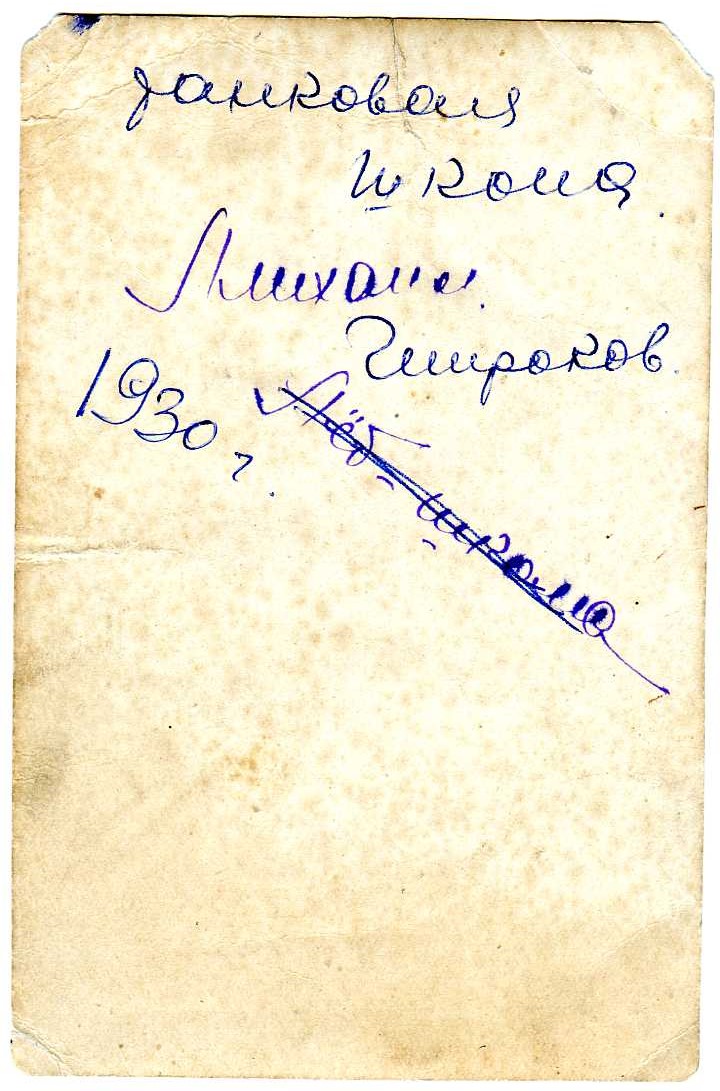 танковая
школа.
Михаил
Широков.
1930 г.
Лёт-школа